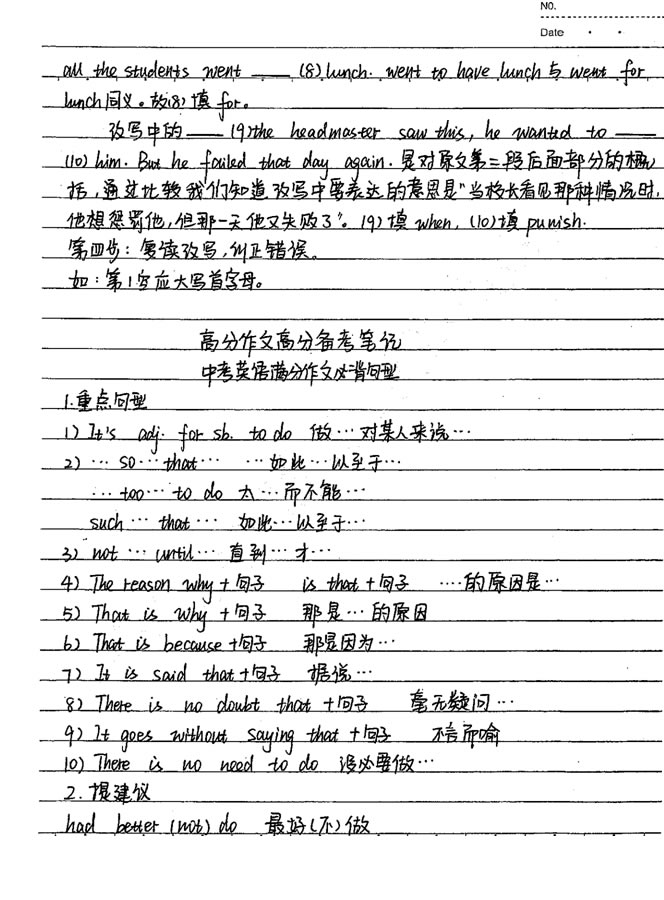 NO.
Date
all the students went ____ (8) lunch. went to have lunch 与 went for
lunch同义。故(8)填 for。
改写中的 ____ (9)the headmaster saw this, he wanted to ____
(10) him. But he failed that day again. 是对原文第二段后面部分的概
括，通过比较我们知道改写中要表达的意思是"当校长看见那种情况时,
他想惩罚他,但那一天他又失败了"。(9)填 when, (10)填 punish.
第四步：复读改写,纠正错误。
如：第1空应大写首字母。
高分作文高分备考笔记
中考英语满分作文必背句型
1.重点句型
1) It's adj. for sb. to do 做…对某人来说…
2) … so … that … …如此…以至于…
… too … to do 太…而不能…
such … that … 如此…以至于…
3) not … until … 直到…才…
4) The reason why+句子 is that+句子 …的原因是…
5) That is why +句子 那是…的原因
6) That is because+句子 那是因为…
7) It is said that+句子 据说…
8) There is no doubt that +句子 毫无疑问…
9) It goes without saying that +句子 不言而喻
10) There is no need to do 没必要做…
2.提建议
had better (not) do 最好(不)做